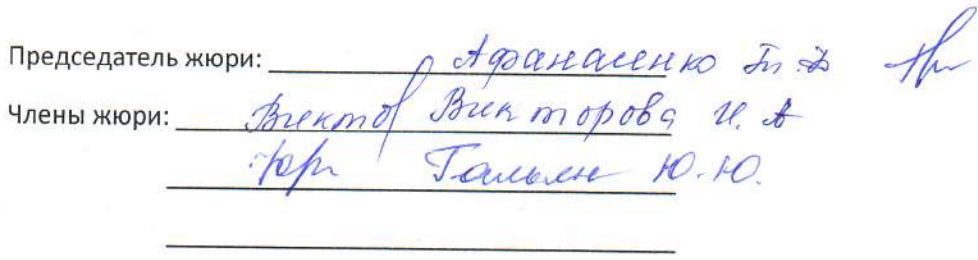 Председатель жюри: Афанасенко
Члены жюри: Викторова И. А
Ю.Ю.